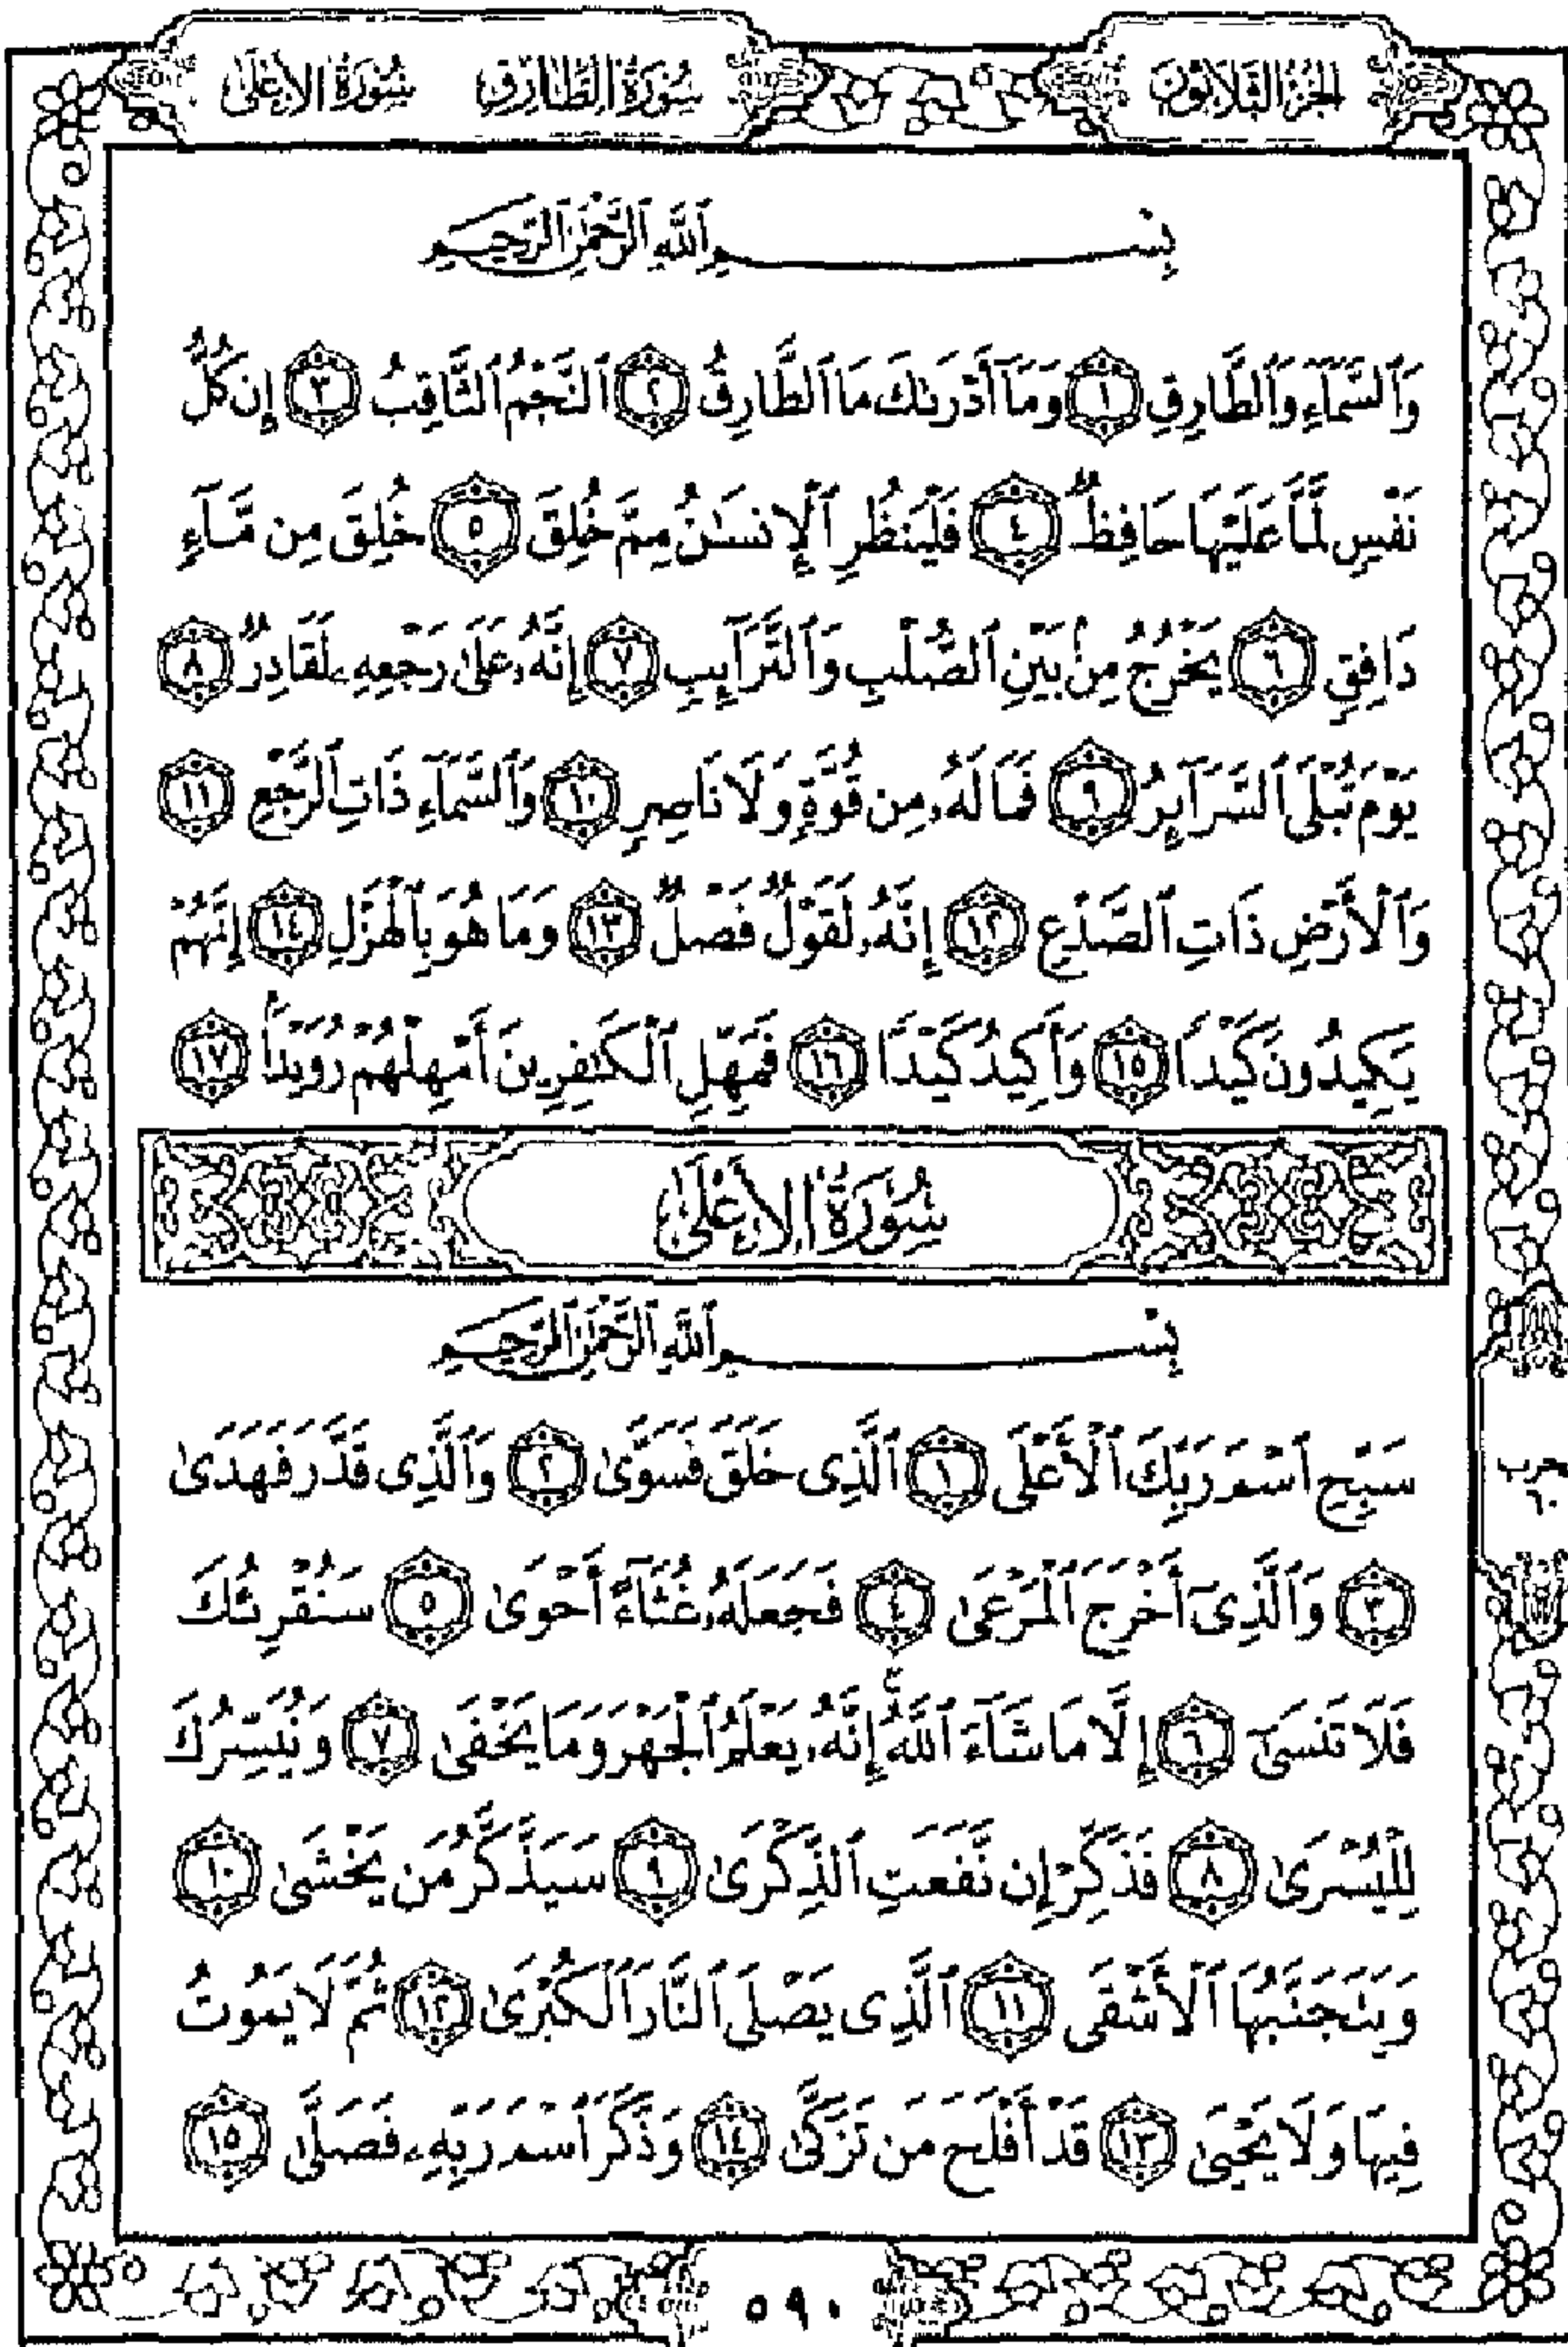 الجزء الثلاثون سورة الطارق سورة الأعلى
بِسْمِ ٱللَّهِ ٱلرَّحْمَٰنِ ٱلرَّحِيمِ
وَٱلسَّمَآءِ وَٱلطَّارِقِ ١ وَمَآ أَدْرَىٰكَ مَا ٱلطَّارِقُ ٢ ٱلنَّجْمُ ٱلثَّاقِبُ ٣ إِن كُلُّ
نَفْسٍ لَّمَّا عَلَيْهَا حَافِظٌ ٤ فَلْيَنظُرِ ٱلْإِنسَٰنُ مِمَّ خُلِقَ ٥ خُلِقَ مِن مَّآءٍ
دَافِقٍ ٦ يَخْرُجُ مِنۢ بَيْنِ ٱلصُّلْبِ وَٱلتَّرَآئِبِ ٧ إِنَّهُۥ عَلَىٰ رَجْعِهِۦ لَقَادِرٌ ٨
يَوْمَ تُبْلَى ٱلسَّرَآئِرُ ٩ فَمَا لَهُۥ مِن قُوَّةٍ وَلَا نَاصِرٍ ١٠ وَٱلسَّمَآءِ ذَاتِ ٱلرَّجْعِ ١١
وَٱلْأَرْضِ ذَاتِ ٱلصَّدْعِ ١٢ إِنَّهُۥ لَقَوْلٌ فَصْلٌ ١٣ وَمَا هُوَ بِٱلْهَزْلِ ١٤ إِنَّهُمْ
يَكِيدُونَ كَيْدًا ١٥ وَأَكِيدُ كَيْدًا ١٦ فَمَهِّلِ ٱلْكَٰفِرِينَ أَمْهِلْهُمْ رُوَيْدًۢا ١٧
سُورَةُ الأَعْلَىٰ
بِسْمِ ٱللَّهِ ٱلرَّحْمَٰنِ ٱلرَّحِيمِ
سَبِّحِ ٱسْمَ رَبِّكَ ٱلْأَعْلَى ١ ٱلَّذِى خَلَقَ فَسَوَّىٰ ٢ وَٱلَّذِى قَدَّرَ فَهَدَىٰ
٣ وَٱلَّذِىٓ أَخْرَجَ ٱلْمَرْعَىٰ ٤ فَجَعَلَهُۥ غُثَآءً أَحْوَىٰ ٥ سَنُقْرِئُكَ
فَلَا تَنسَىٰٓ ٦ إِلَّا مَا شَآءَ ٱللَّهُ ۚ إِنَّهُۥ يَعْلَمُ ٱلْجَهْرَ وَمَا يَخْفَىٰ ٧ وَنُيَسِّرُكَ
لِلْيُسْرَىٰ ٨ فَذَكِّرْ إِن نَّفَعَتِ ٱلذِّكْرَىٰ ٩ سَيَذَّكَّرُ مَن يَخْشَىٰ ١٠
وَيَتَجَنَّبُهَا ٱلْأَشْقَى ١١ ٱلَّذِى يَصْلَى ٱلنَّارَ ٱلْكُبْرَىٰ ١٢ ثُمَّ لَا يَمُوتُ
فِيهَا وَلَا يَحْيَىٰ ١٣ قَدْ أَفْلَحَ مَن تَزَكَّىٰ ١٤ وَذَكَرَ ٱسْمَ رَبِّهِۦ فَصَلَّىٰ ١٥
حزب
٦٠
٥٩٠